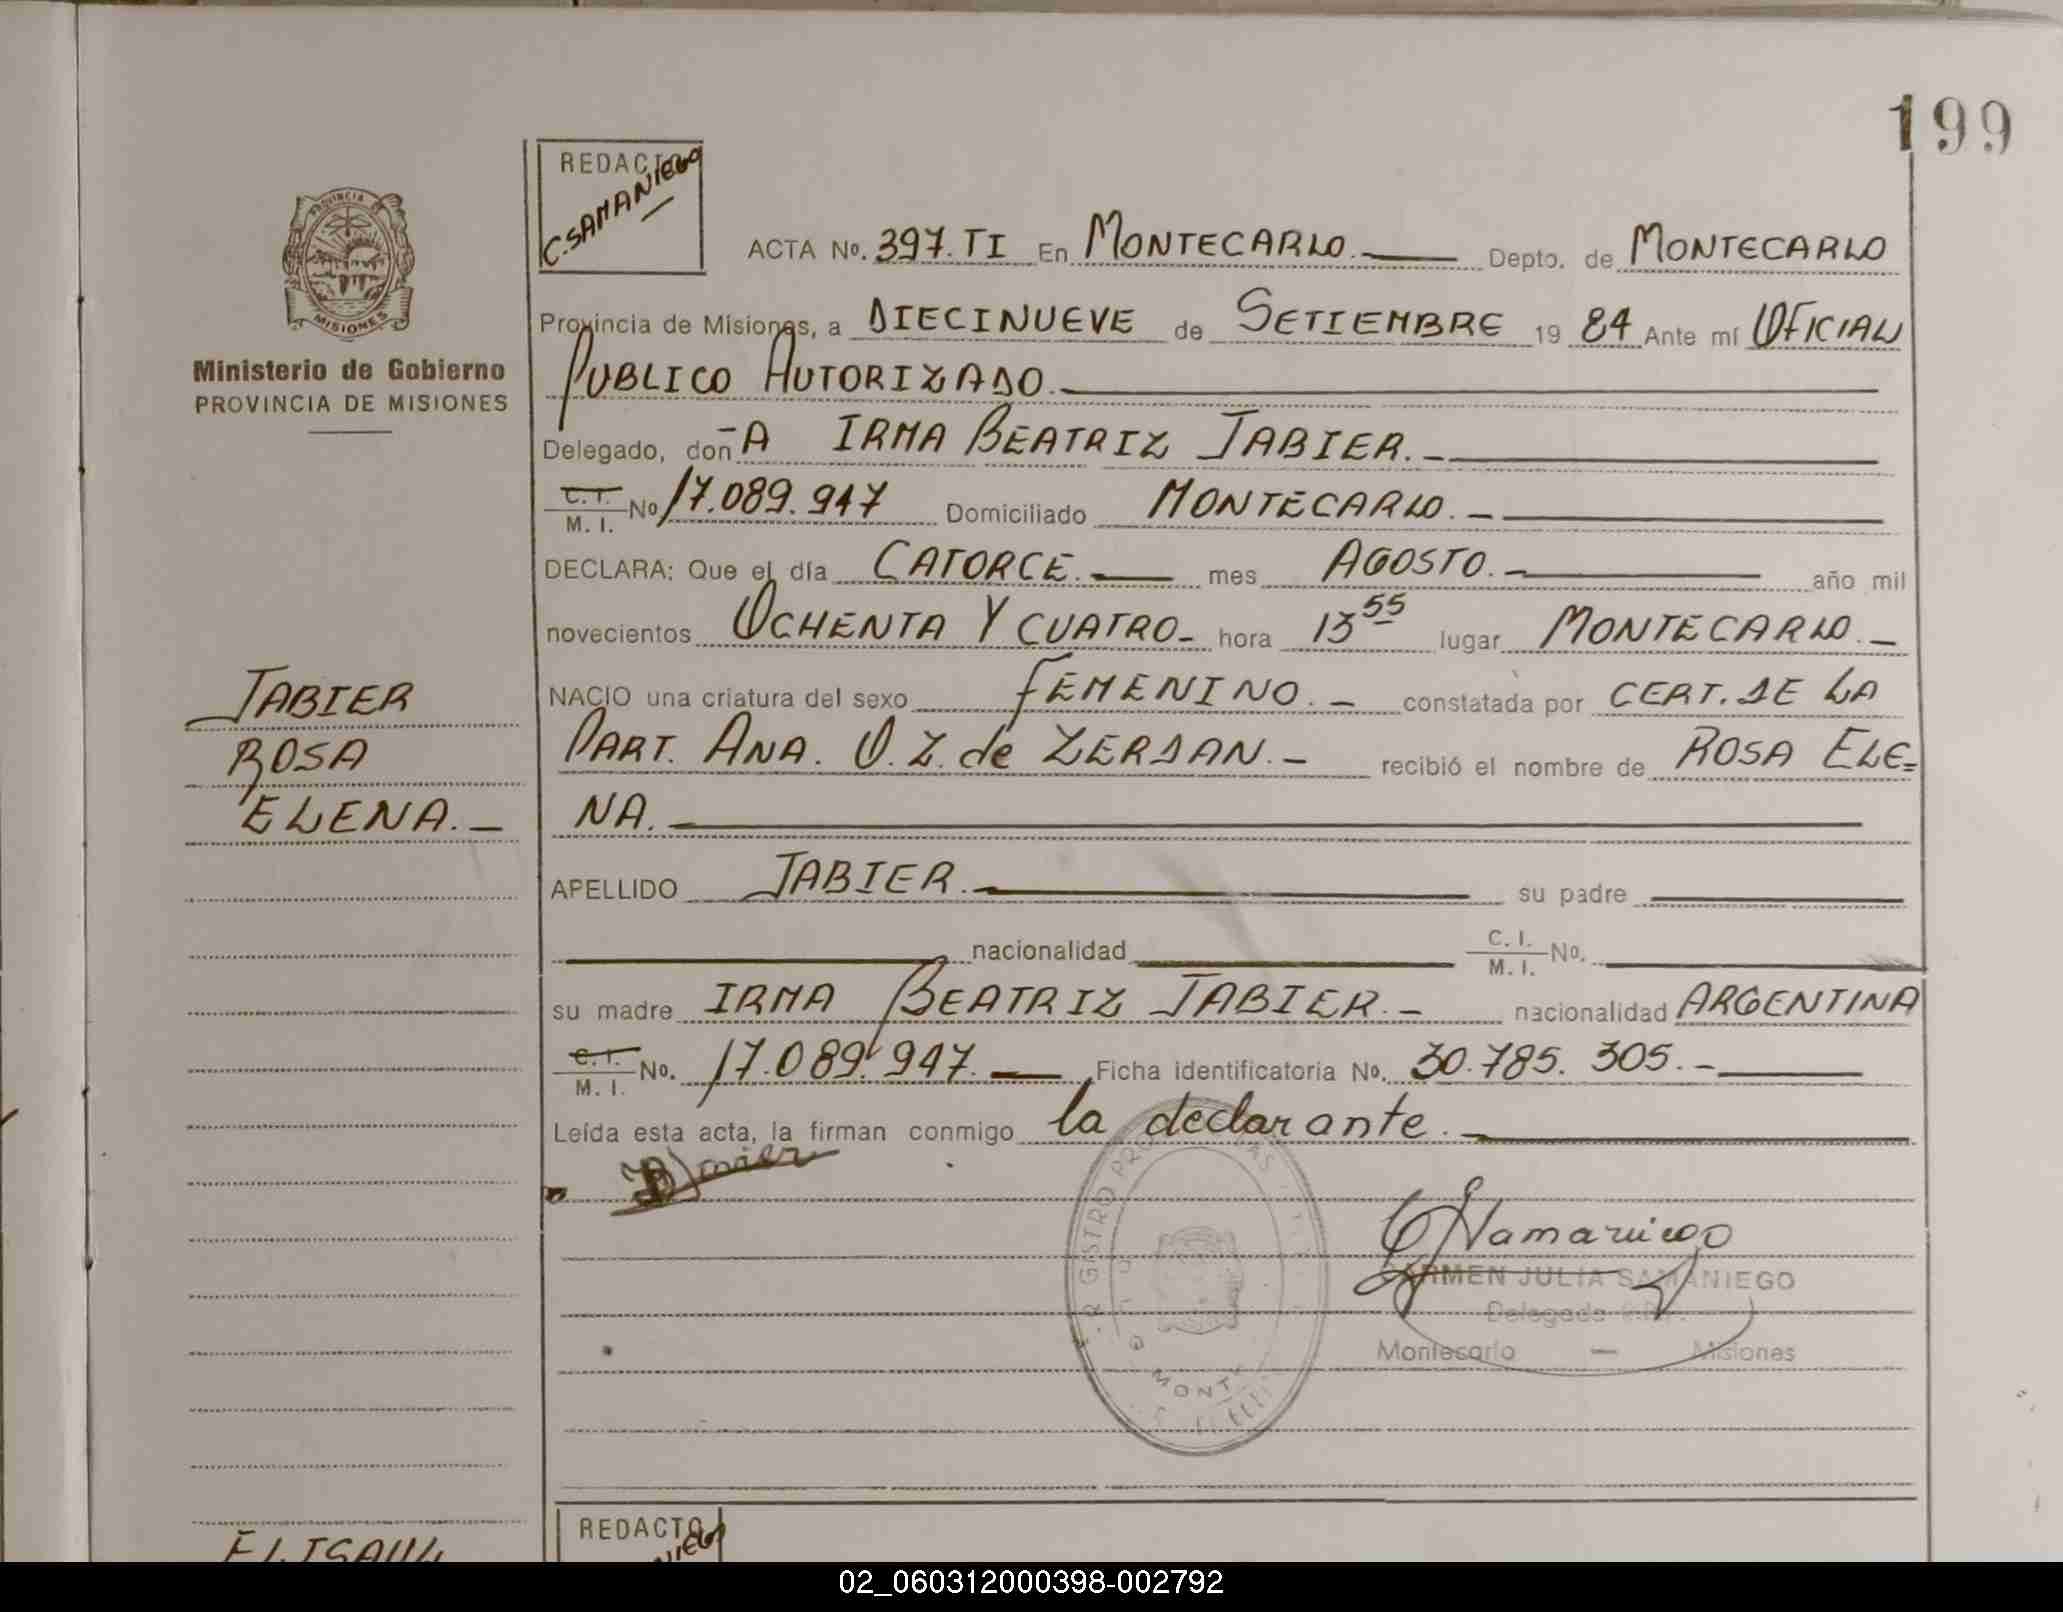 199
REDACTO
C. SAMANIEGO
PROVINCIA DE
MISIONES
Ministerio de Gobierno
PROVINCIA DE MISIONES
ACTA No. 397. TI En MONTECARLO. Depto. de MONTECARLO
Provincia de Misiones, a DIECINUEVE de SETIEMBRE 19 84 Ante mí OFICIAL
PUBLICO AUTORIZADO.
Delegado, don A IRMA BEATRIZ JABIER.-
C. I. M. I. No 17.089.947 Domiciliado MONTECARLO.-
DECLARA: Que el día CATORCE. mes AGOSTO.- año mil
novecientos OCHENTA Y CUATRO- hora 13 55 lugar MONTECARLO.-
NACIO una criatura del sexo FEMENINO.- constatada por CERT. DE LA
PART. ANA. O. Z. de ZERDAN.- recibió el nombre de ROSA ELE=
NA.
JABIER
ROSA
ELENA.-
APELLIDO JABIER.- su padre
nacionalidad C. I. M. I. No.
su madre IRMA BEATRIZ JABIER.- nacionalidad ARGENTINA
C. I. M. I. No. 17.089.947. Ficha identificatoria No. 30.785.305.-
Leída esta acta, la firman conmigo la declarante.-
CSamaniego
CARMEN JULIA SAMANIEGO
Delegada
Montecarlo — Misiones
REDACTO
02_060312000398-002792